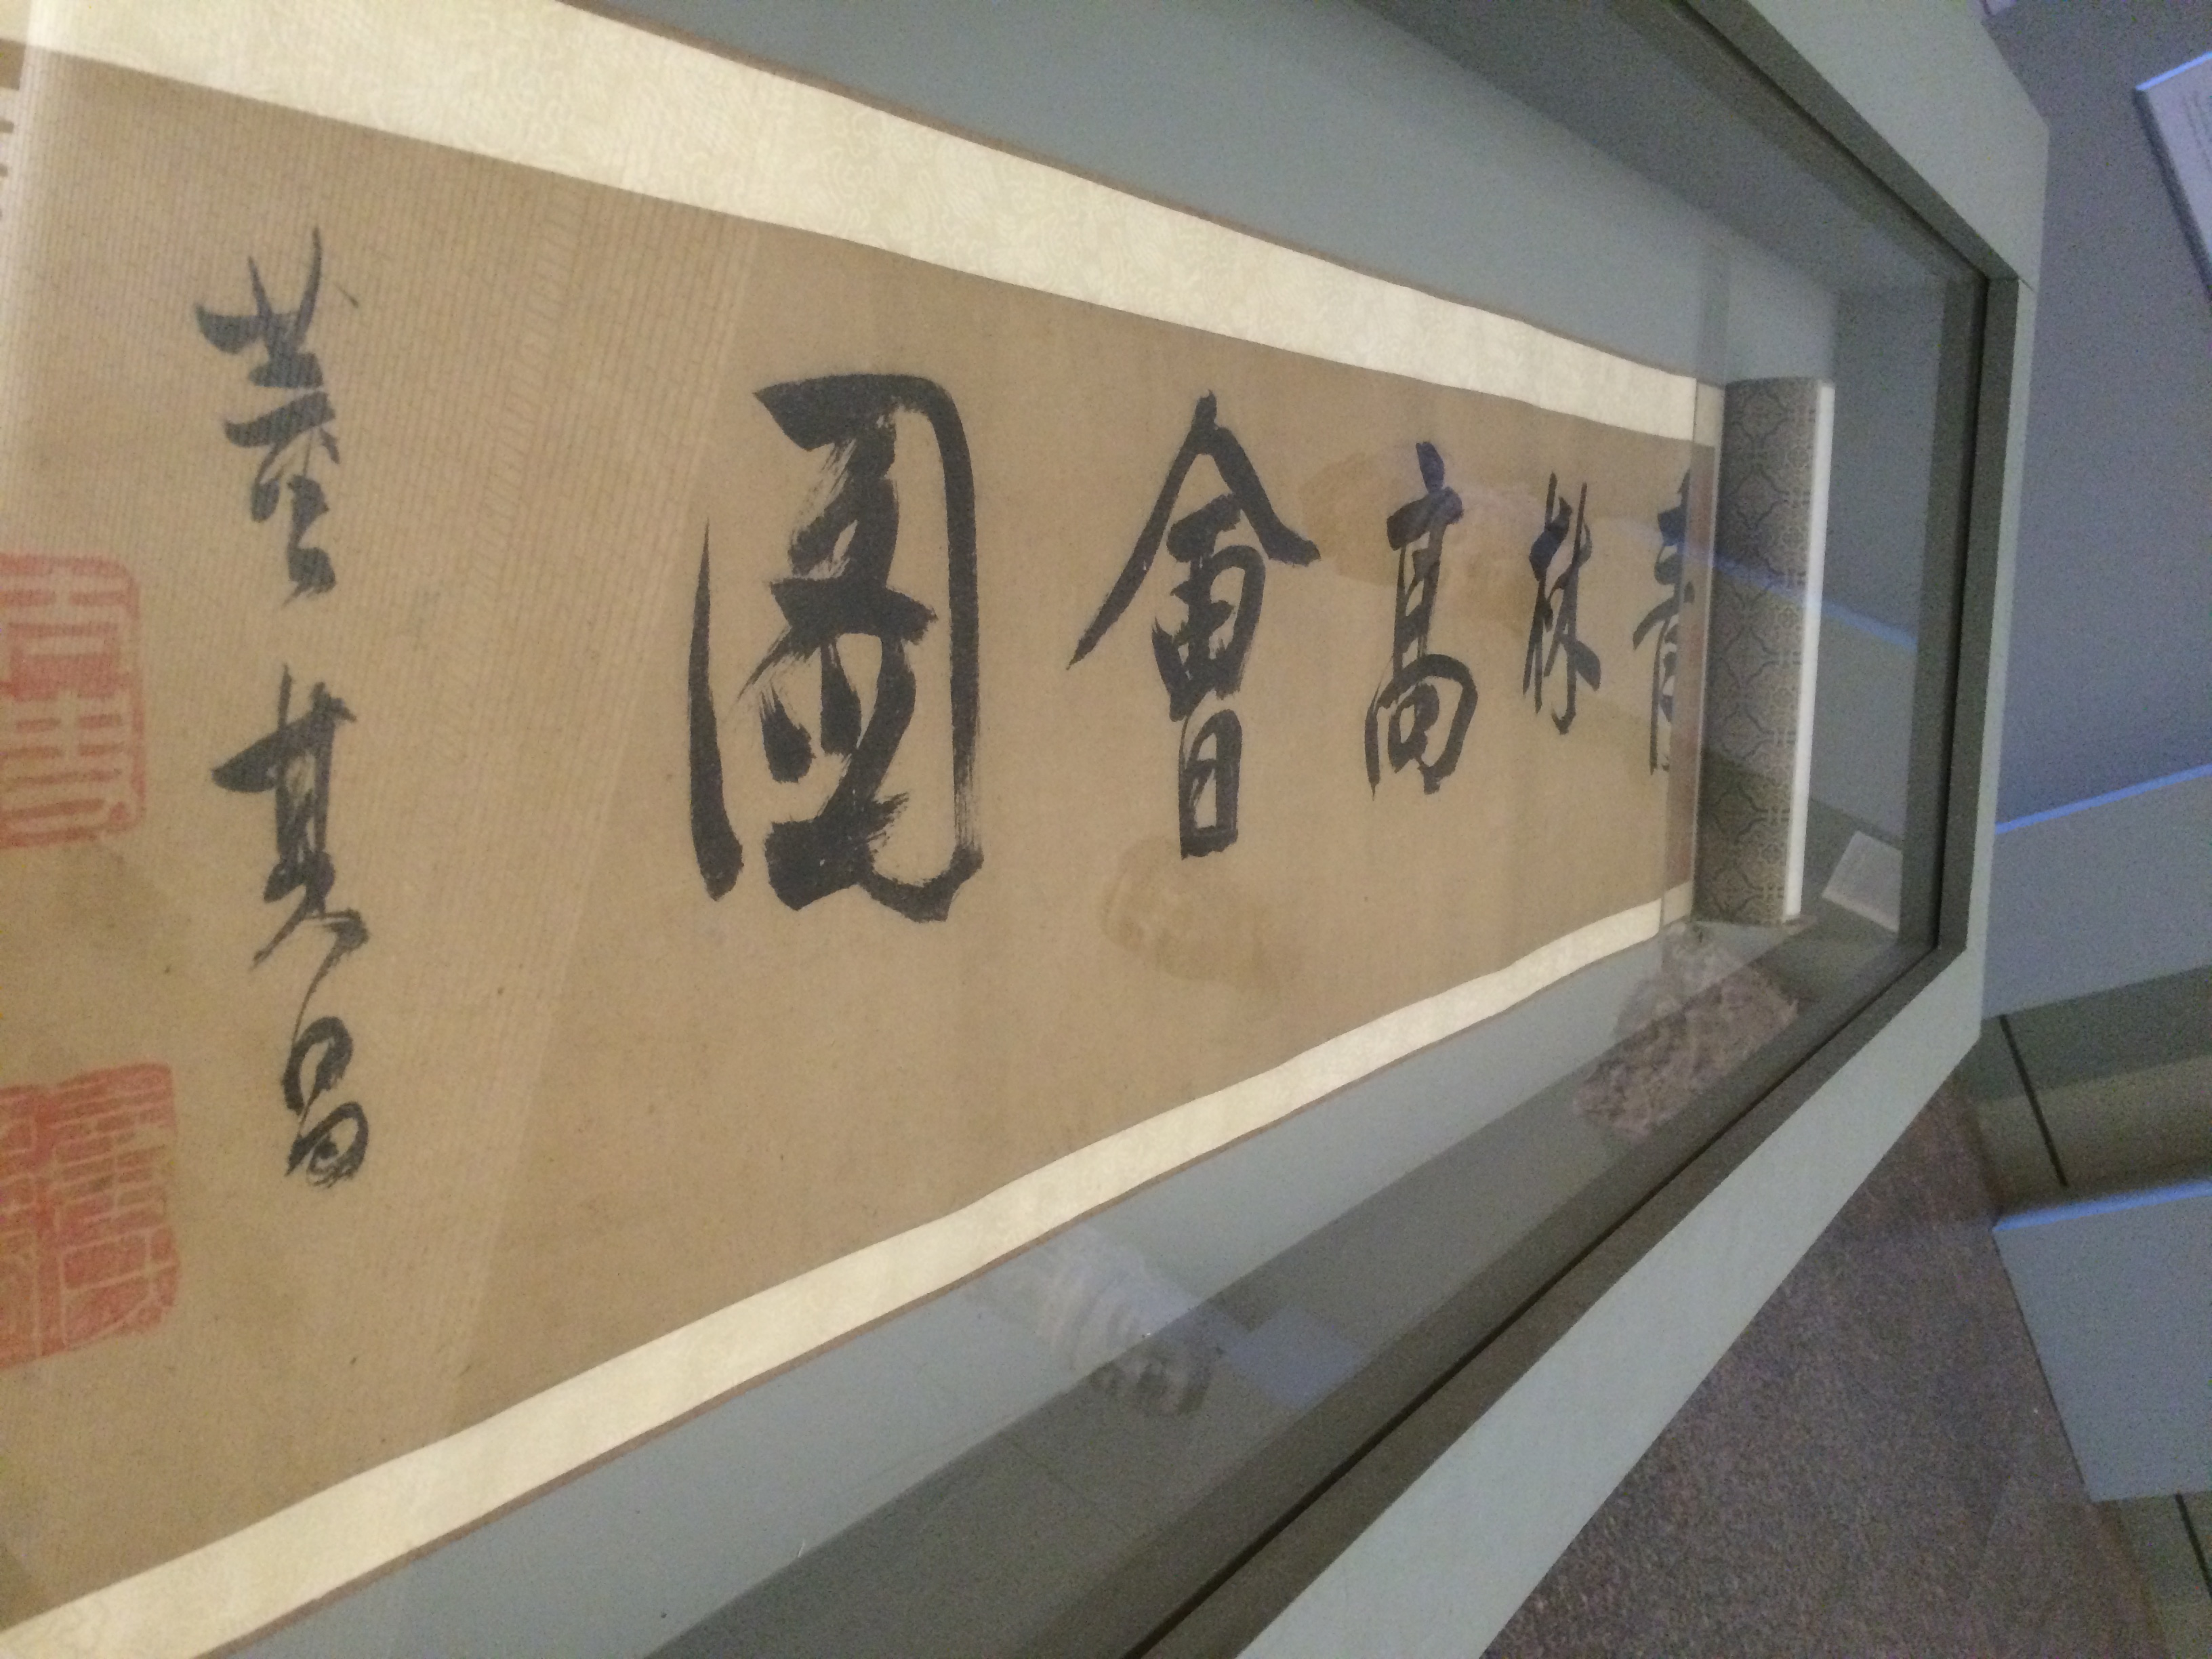 青林高會圖
董其昌